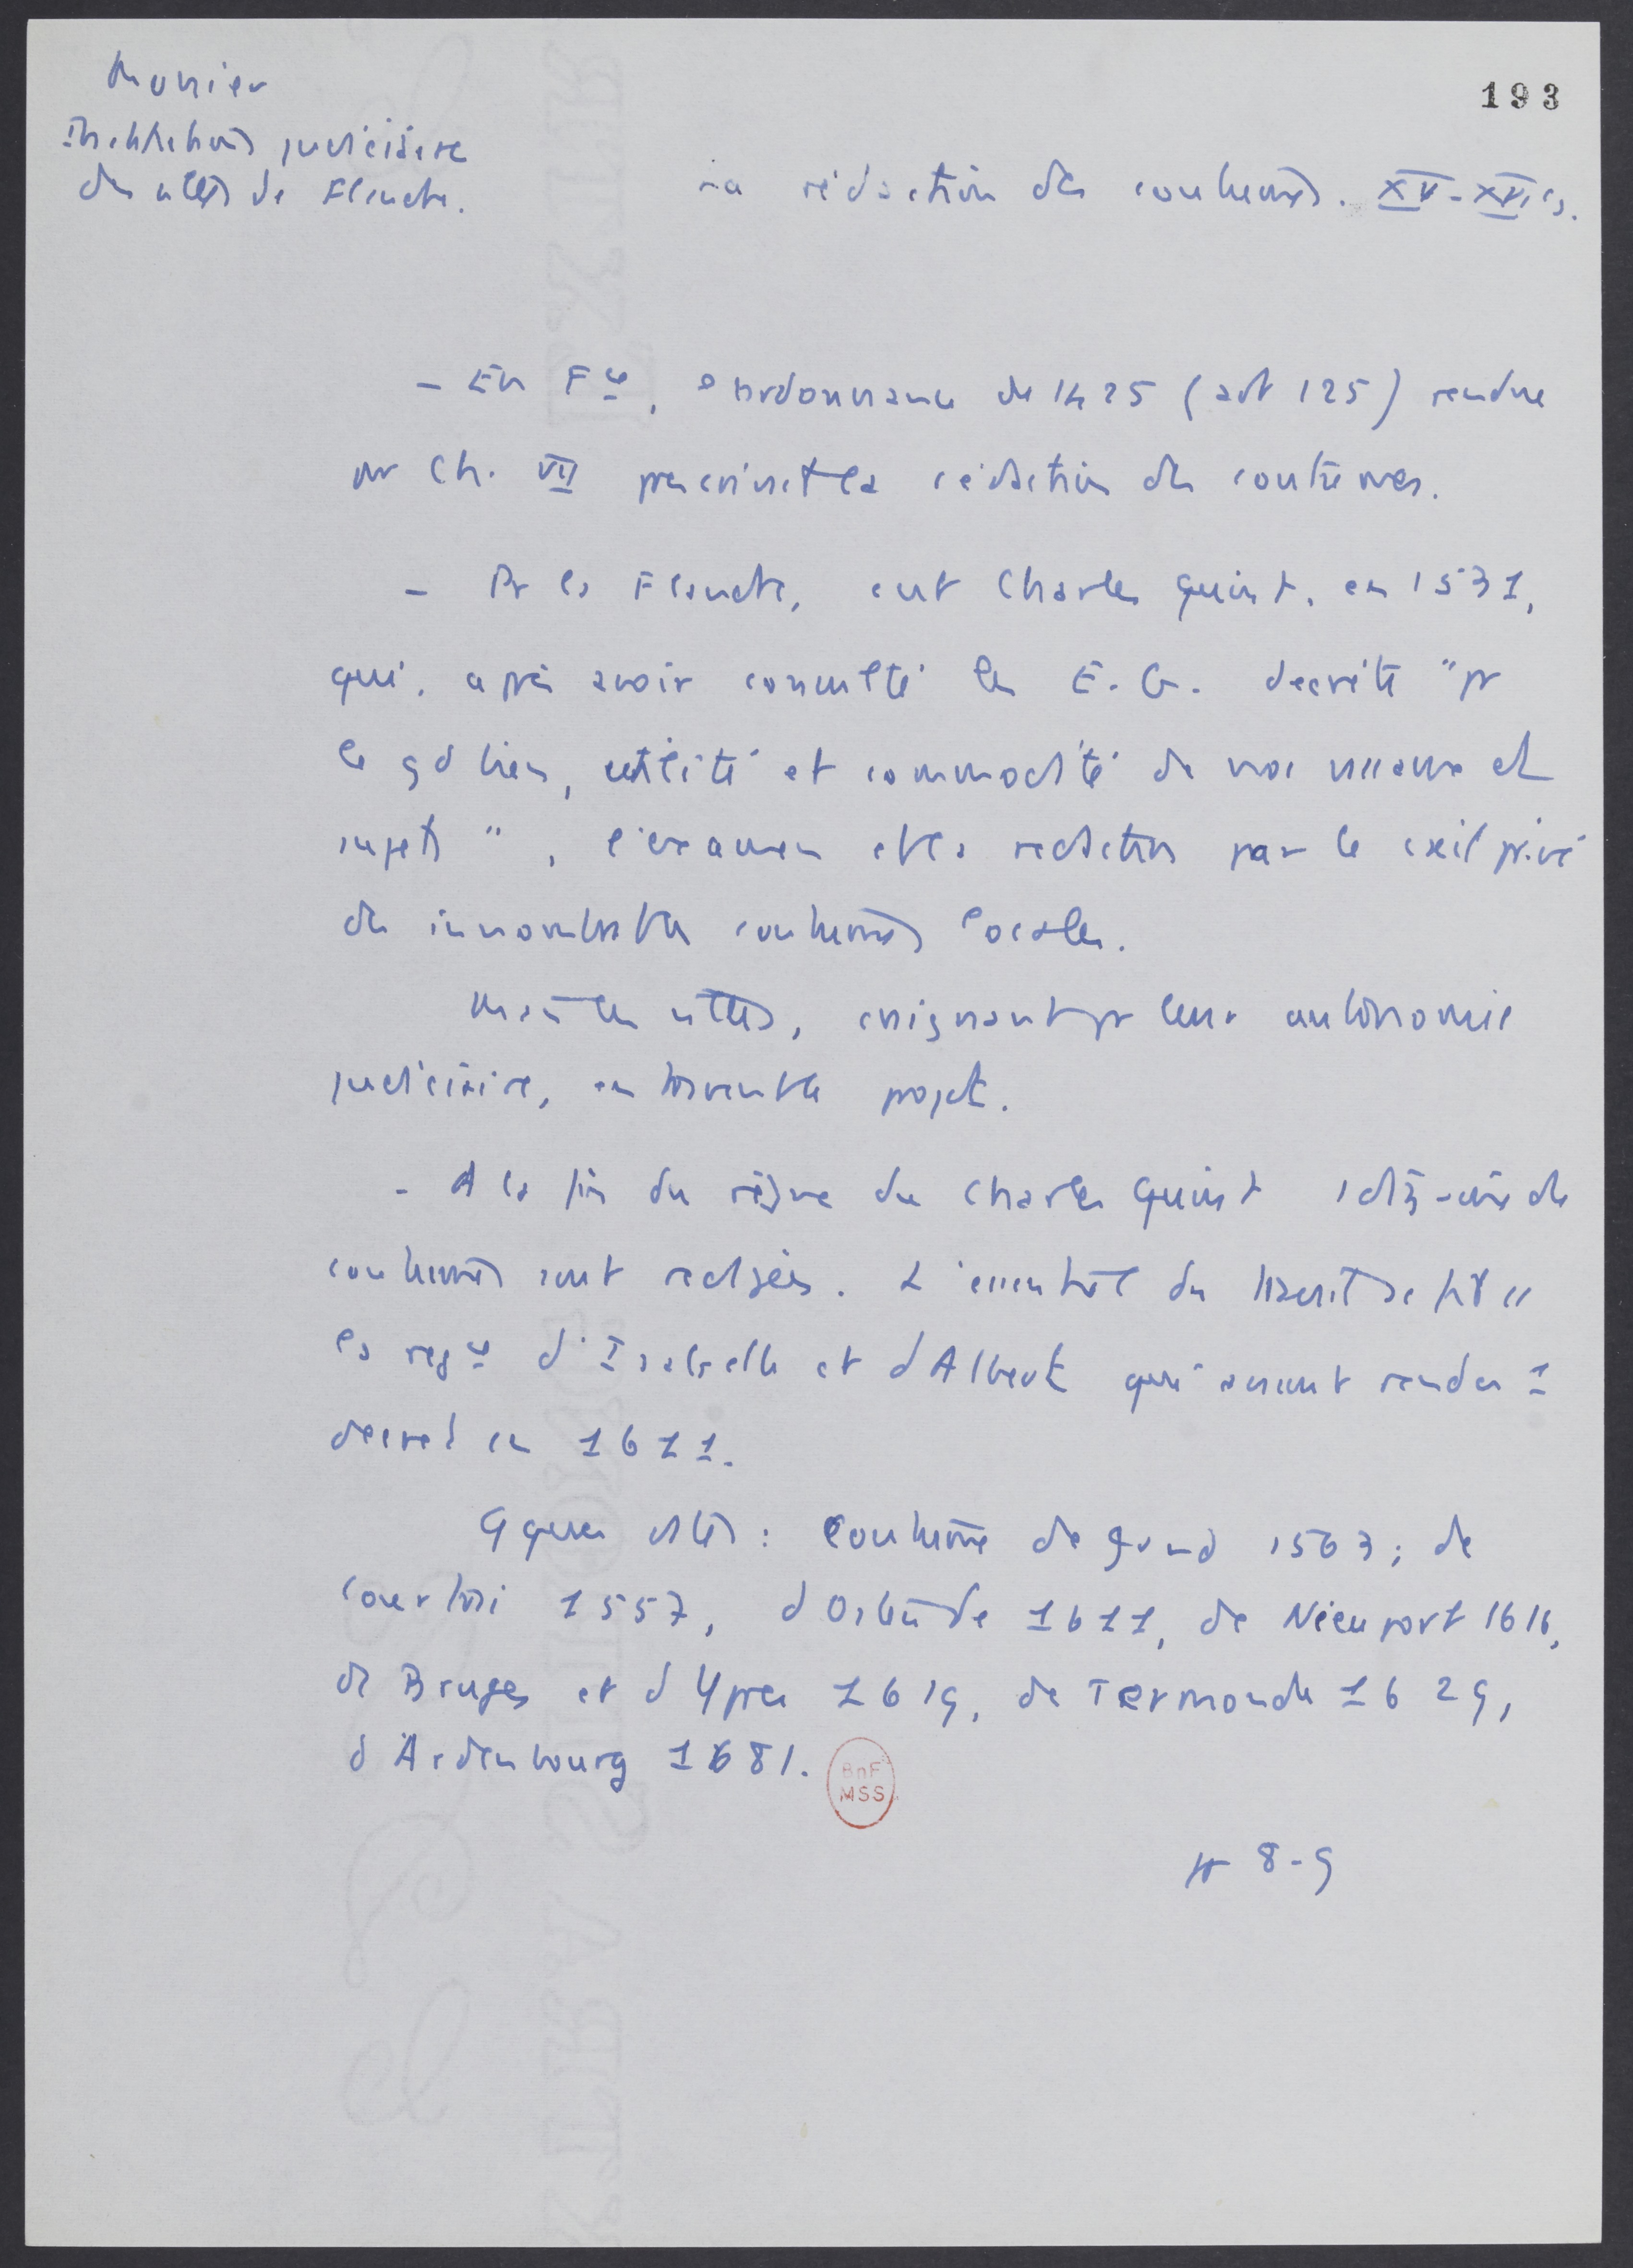 Monier
Institutions judiciaires
des villes de Flandre.
193
La rédaction des coutumes. XV-XVIe s.
- En Fce, l'ordonnance de 1425 (art 125) rendue
par Ch. VII prescrivit la rédaction des coutumes.
- Pr la Flandre, c'est Charles Quint, en 1531,
qui, après avoir consulté les E. G. décrète "pr
le gd bien, utilité et commodité de nos vassaux et
sujets", l'examen et la rédaction par le cseil privé
des innombrables coutumes locales.
Mais les villes, craignant pr leur autonomie
judiciaire, entravent le projet.
- A la fin du règne de Charles Quint, 1 dizaine de
coutumes sont rédigées. L'essentiel du travail se fit ss
la regce d'Isabelle et d'Albert qui avaient rendu 1
décret en 1611.
Qques dates: Coutume de Gand 1563; de
Courtrai 1557, d'Ostende 1611, de Nieuport 1616,
de Bruges et d'Ypres 1619, de Termonde 1629,
d'Ardenbourg 1681.
BnF
MSS
pp 8-9